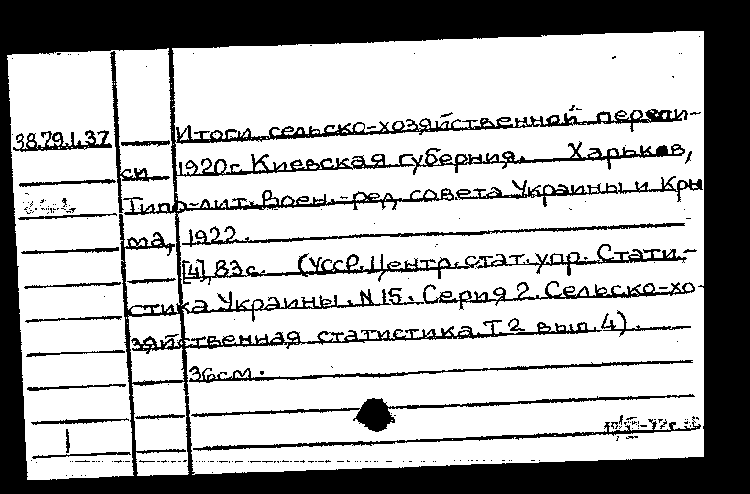 38.79.1.37 Итоги сельско-хозяйственной перепи-
си 1920г. Киевская губерния. Харьков,
Типо-лит. Воен.-ред. совета Украины и Кры
ма, 1922.
[4], 83с. (УССР. Центр. стат. упр. Стати-
стика Украины. N 15. Серия 2. Сельско-хо-
зяйственная статистика. Т 2 вып. 4).
36см.